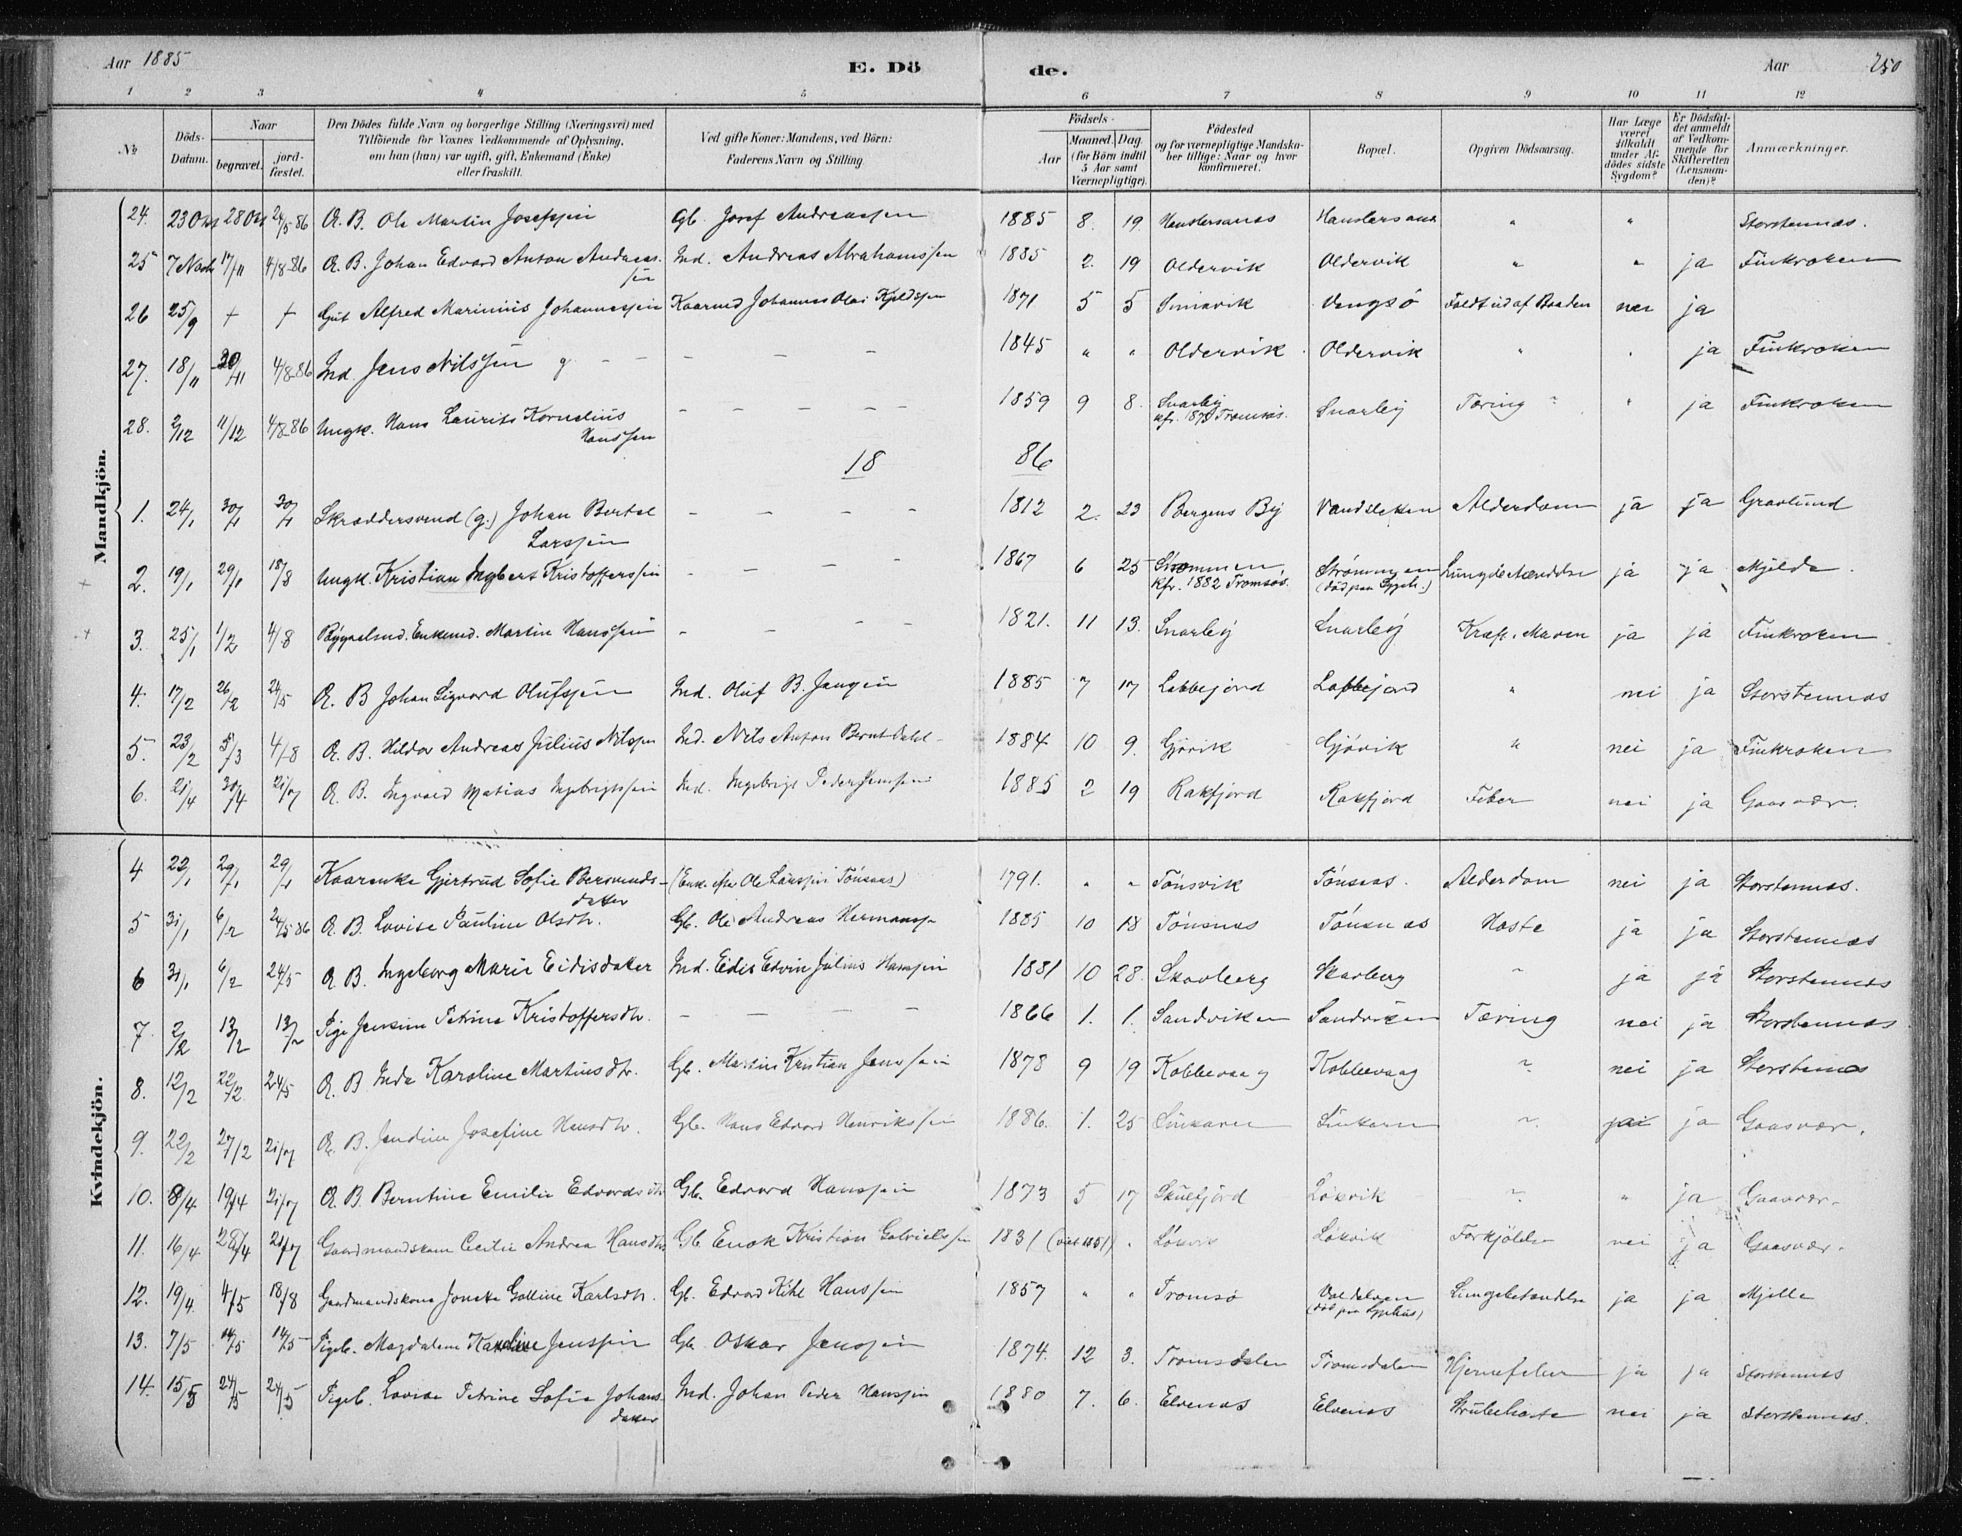 Aar 1885 E. Dö de. Aar 250
1 2 3 4 5 6 7 8 9 10 11 12
№ Döds-Datum. Naar begravet. jordfæstet. Den Dödes fulde Navn og borgerlige Stilling (Næringsvei) med Tilföiende for Voxnes Vedkommende af Oplysning, om han (hun) var ugift, gift, Enkemand (Enke) eller fraskilt. Ved gifte Koner: Mandens, ved Börn: Faderens Navn og Stilling. Födsels- Aar Maaned. Dag. (for Börn indtil 5 Aar samt Værnepligtige). Födested og for værnepligtige Mandskaber tillige: Naar og hvor konfirmeret. Bopæl. Opgiven Dödsaarsag. Har Læge været tilkaldt under Afdödes sidste Sygdom? Er Dödsfaldet anmeldt af Vedkommende for Skifteretten (Lensmanden)? Anmærkninger.
Mandkjön.
24. 23 Okt 28 Okt 24/5 86 Æ. B. Ole Martin Josefssen Gb. Josef Andreassen 1885 8. 19 " " Storstennæs.
25 7 Novb 17/11 4/8 86 Æ. B. Johan Edvard Anton Andreas-sen Ind. Andreas Abrahamssen 1885 2. 19 Oldervik Oldervik " " ja Finkroken
26 25/9 + + Gut Alfred Marinius Johannessen Kaarmd Johannes Olai Kjeldsen 1871 5 5 Vengsö Faldt ud af Baaden nei ja
27. 18/11 30/11 4/8 86 Ind. Jens Nilssen g – – – – – 1845 " " Oldervik. Oldervik " " ja Finkroken
28. 2/12 11/12 4/8 86 Ungk. Hans Laurits Kornelius Hanssen – – – – – 1859 9 8. Snarby kfr. 187 Tromsös. Snarby Tæring " ja Finkroken
18 86
1. 24/1 30/1 30/1 Skræddersvend (g.) Johan Bertel Larssen – – – – 1812 2. 23 Bergens By Alderdom ja ja Gravlund
2. 19/1 29/1 18/8 Ungk. Kristian Ingbert Kristofferssen – – – – 1867 6 25 Strömmen kfr. 1882 Tromsös. Strömmen (död paa Sygeh.) Lungebetændelse ja ja Mjelde.
3. 25/1 1/2 4/8 Enkemd. Martin Hanssen – – – – 1821. 11 13. Snarby Snarby Kræft i Maven ja ja Finkroken
4. 17/2 26/2 24/5 Æ. B Johan Sigvard Olufssen Ind. Oluf B. 1885 7 17 Labbejord Labbejord " nei ja Storstennæs
5. 23/2 5/3 4/8 Æ. B. Hildor Andreas Julius Nilssen Ind. Nils Anton Bernt Dahl 1884 10 9. Gjövik Gjövik " nei ja Finkroken
6. 21/4 30/4 21/7 Æ. B. Ingvald Matias Ingebrigtssen Ind. Ingebrigt Peder Jenssen 1885 2 19 Rakfjord Rakfjord Feber nei ja Gaasvær.
Kvindekjön.
4 22/1 29/1 29/1 Kaarenke Gjertrud Sofie Bersvends-datter (Enke efter Ole Larssen Tönsnæs) 1791. " " Tönsvik Tönsnæs. Alderdom nei ja Storstennæs.
5 31/1 6/2 24/5 86 Æ. B. Lovise Pauline Olsdtr. Gb. Ole Andreas Hermanssen 1885 10 18 Tönsnæs Tönsnæs Hoste ja ja Storstennæs
6 31/1 6/2 24/5 Æ. B. Ingeborg Marie Eidisdatter Ind. Eidis Edvin Julius Hanssen 1881 10 28. Skavberg Skavberg " ja ja Storstennæs
7. 2/2 13/2 13/2 Pige Jensine Petrine Kristoffersdtr. – – – – 1866 1. 1. Sandviken Sandviken Tæring nei ja Storstennæs
8. 12/2 22/2 24/5 Æ. B Inda Karoline Martinsdtr. Gb. Martin Kristian Jenssen 1878 9 19 Kobbevaag Kobbevaag " nei ja Storstennæs
9. 22/2 27/2 21/7 Æ. B. Jendine Josefine Hansdtr. Gb. Hans Edvard Henrikssen 1886. 1. 25 " ja Gaasvær.
10. 8/4 19/4 21/7 Æ. B. Berntine Emilie Edvardsdtr. Gb. Edvard Hanssen 1873 5 17 Skulfjord Lökvik " " ja Gaasvær.
11. 16/4 28/4 21/7 Gaardmandskone Cecilie Andrea Hansdtr. Gb Enok Kristian Gabrielssen 1831 " Lökvik Lökvik Forkjölelse nei ja Gaasvær.
12. 19/4 4/5 18/8 Gaardmandskone Jonetta Golline Karlsdtr. Gb. Edvard Kihl Hanssen 1857 " " Tromsö (död paa Sygehus) Lungebetændelse ja ja Mjelle
13. 7/5 14/5 14/5 Pigeb. Magdalene Karoline Jenssen Gb. Oskar Jenssen 1874. 12 3. Tromsdalen Tromsdalen Hjernefeber ja ja Storstennæs
14. 15/5 24/5 24/5 Pigeb. Lovise Petrine Sofie Johans-datter Ind. Johan Peder Hanssen 1880 7. 6. Elvenæs Elvenæs Strubehoste nei ja Storstennæs.